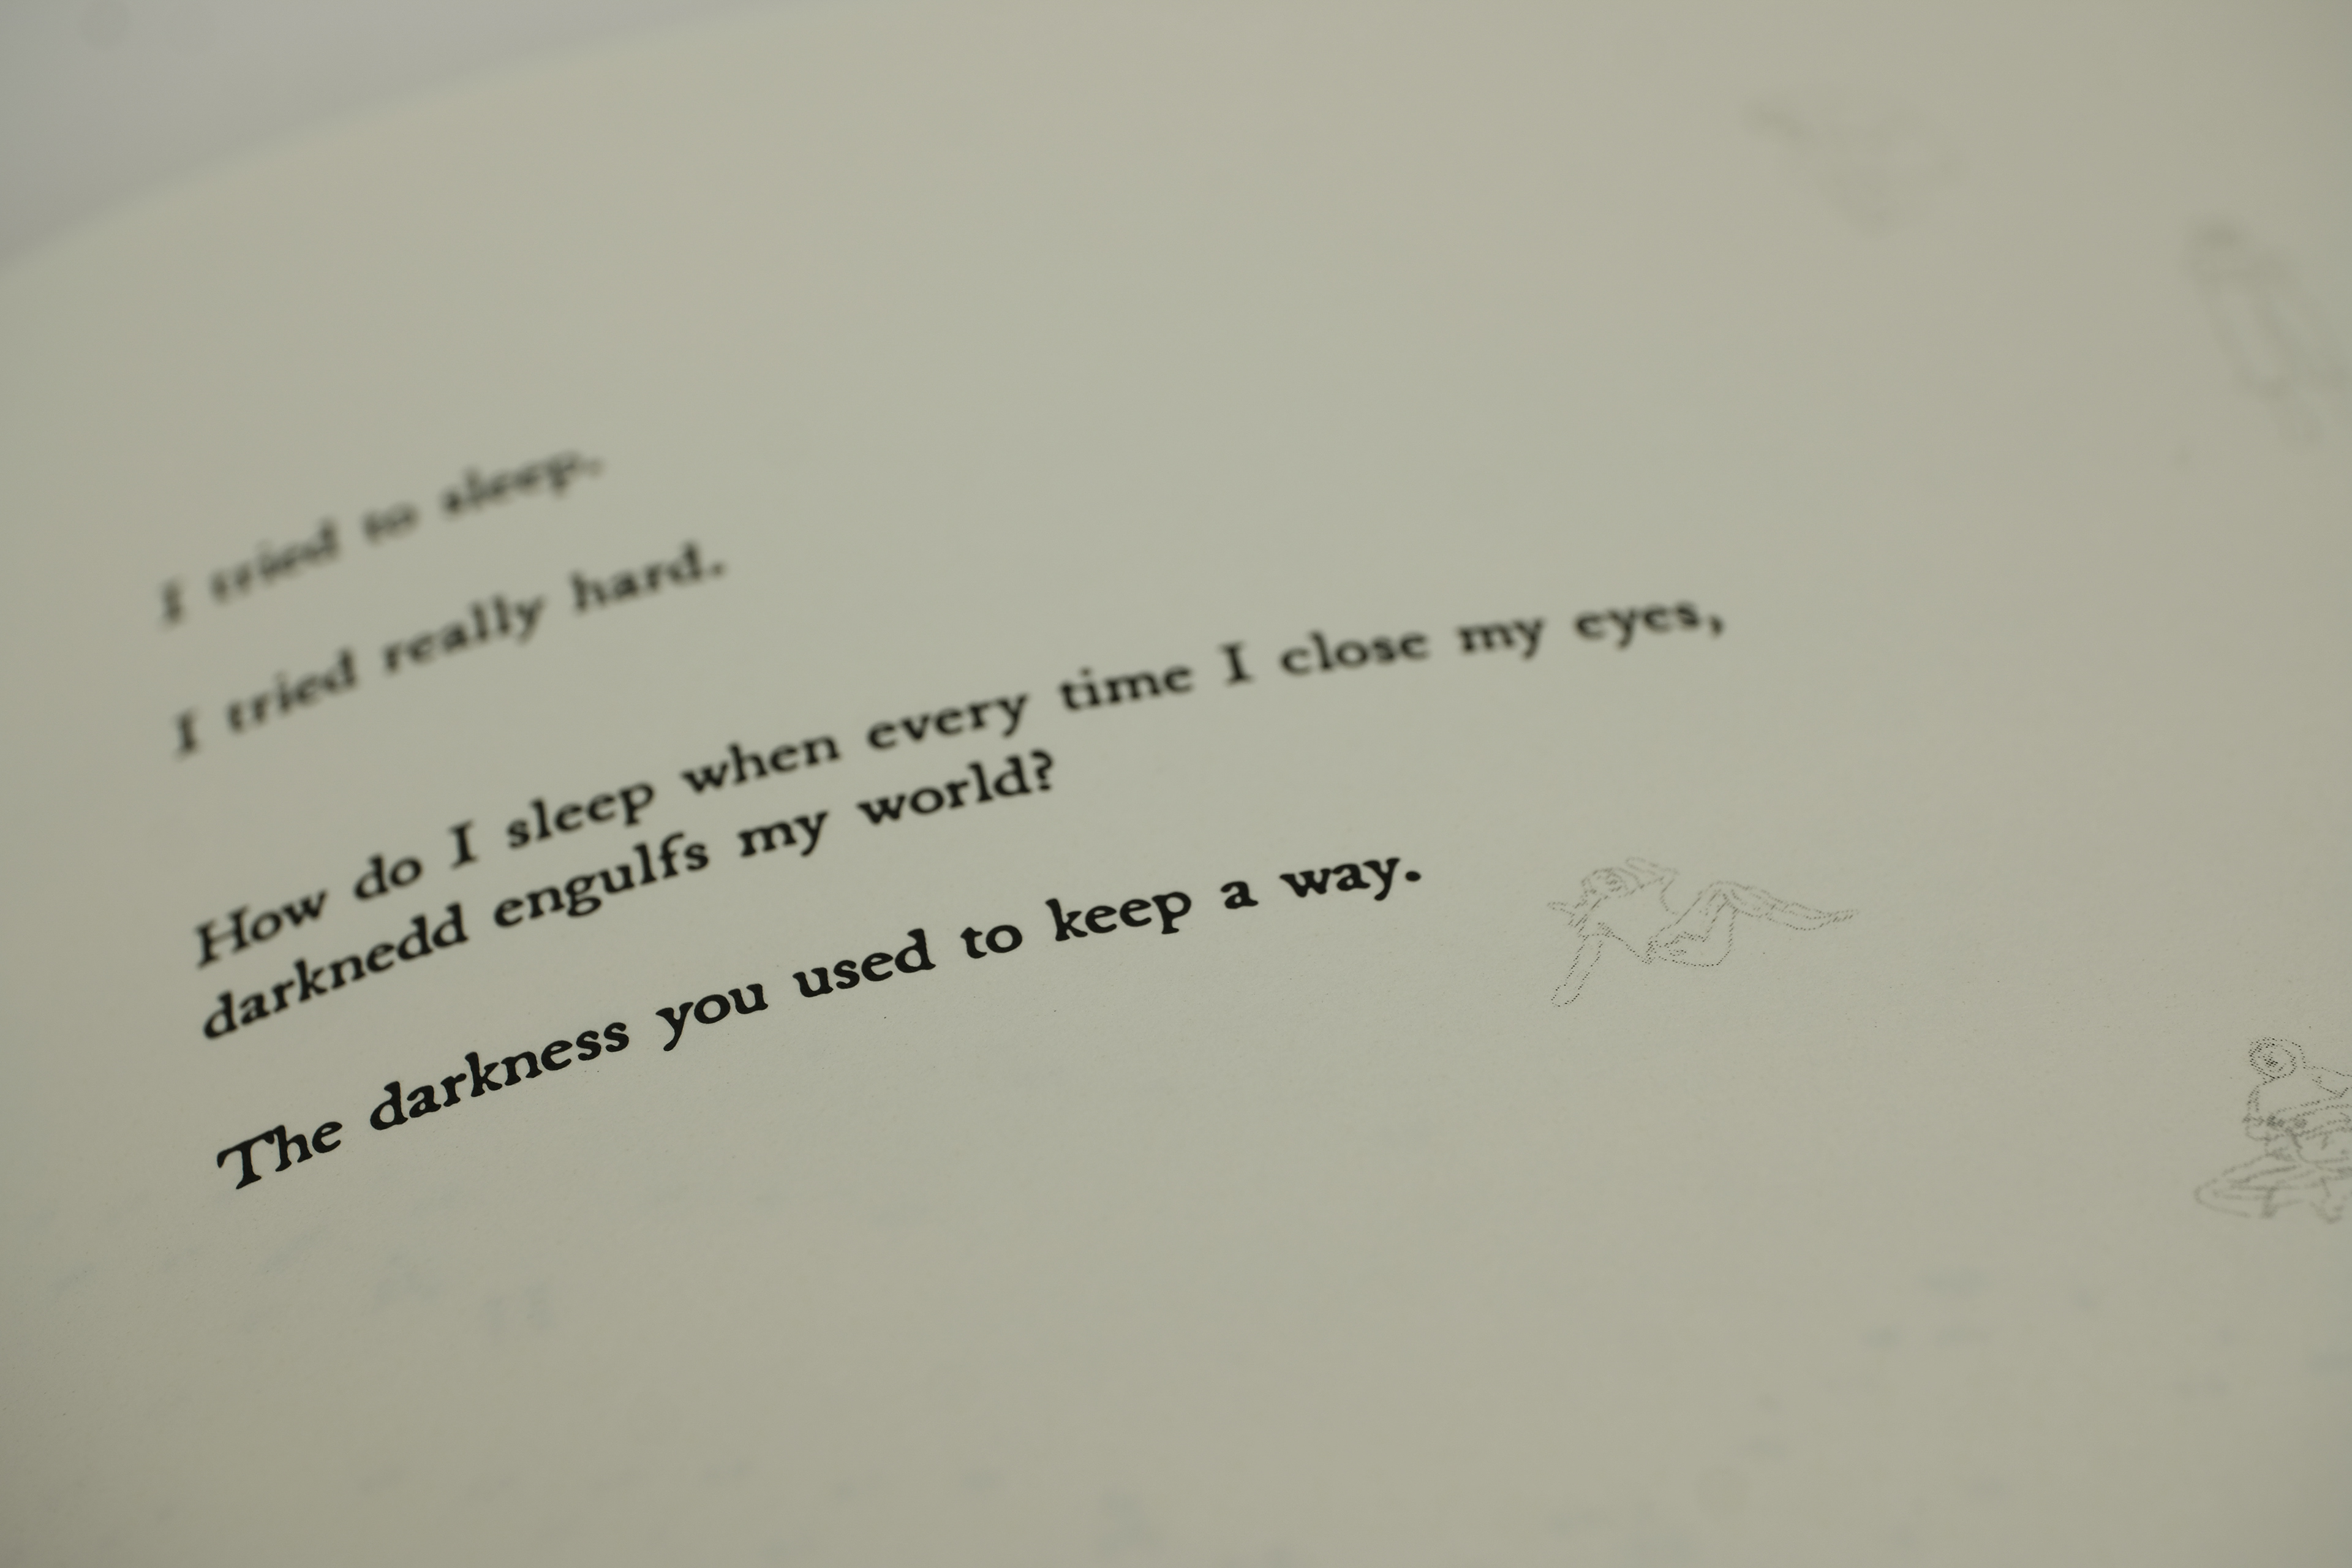 I tried to sleep.
I tried really hard.
How do I sleep when every time I close my eyes,
darknedd engulfs my world?
The darkness you used to keep a way.